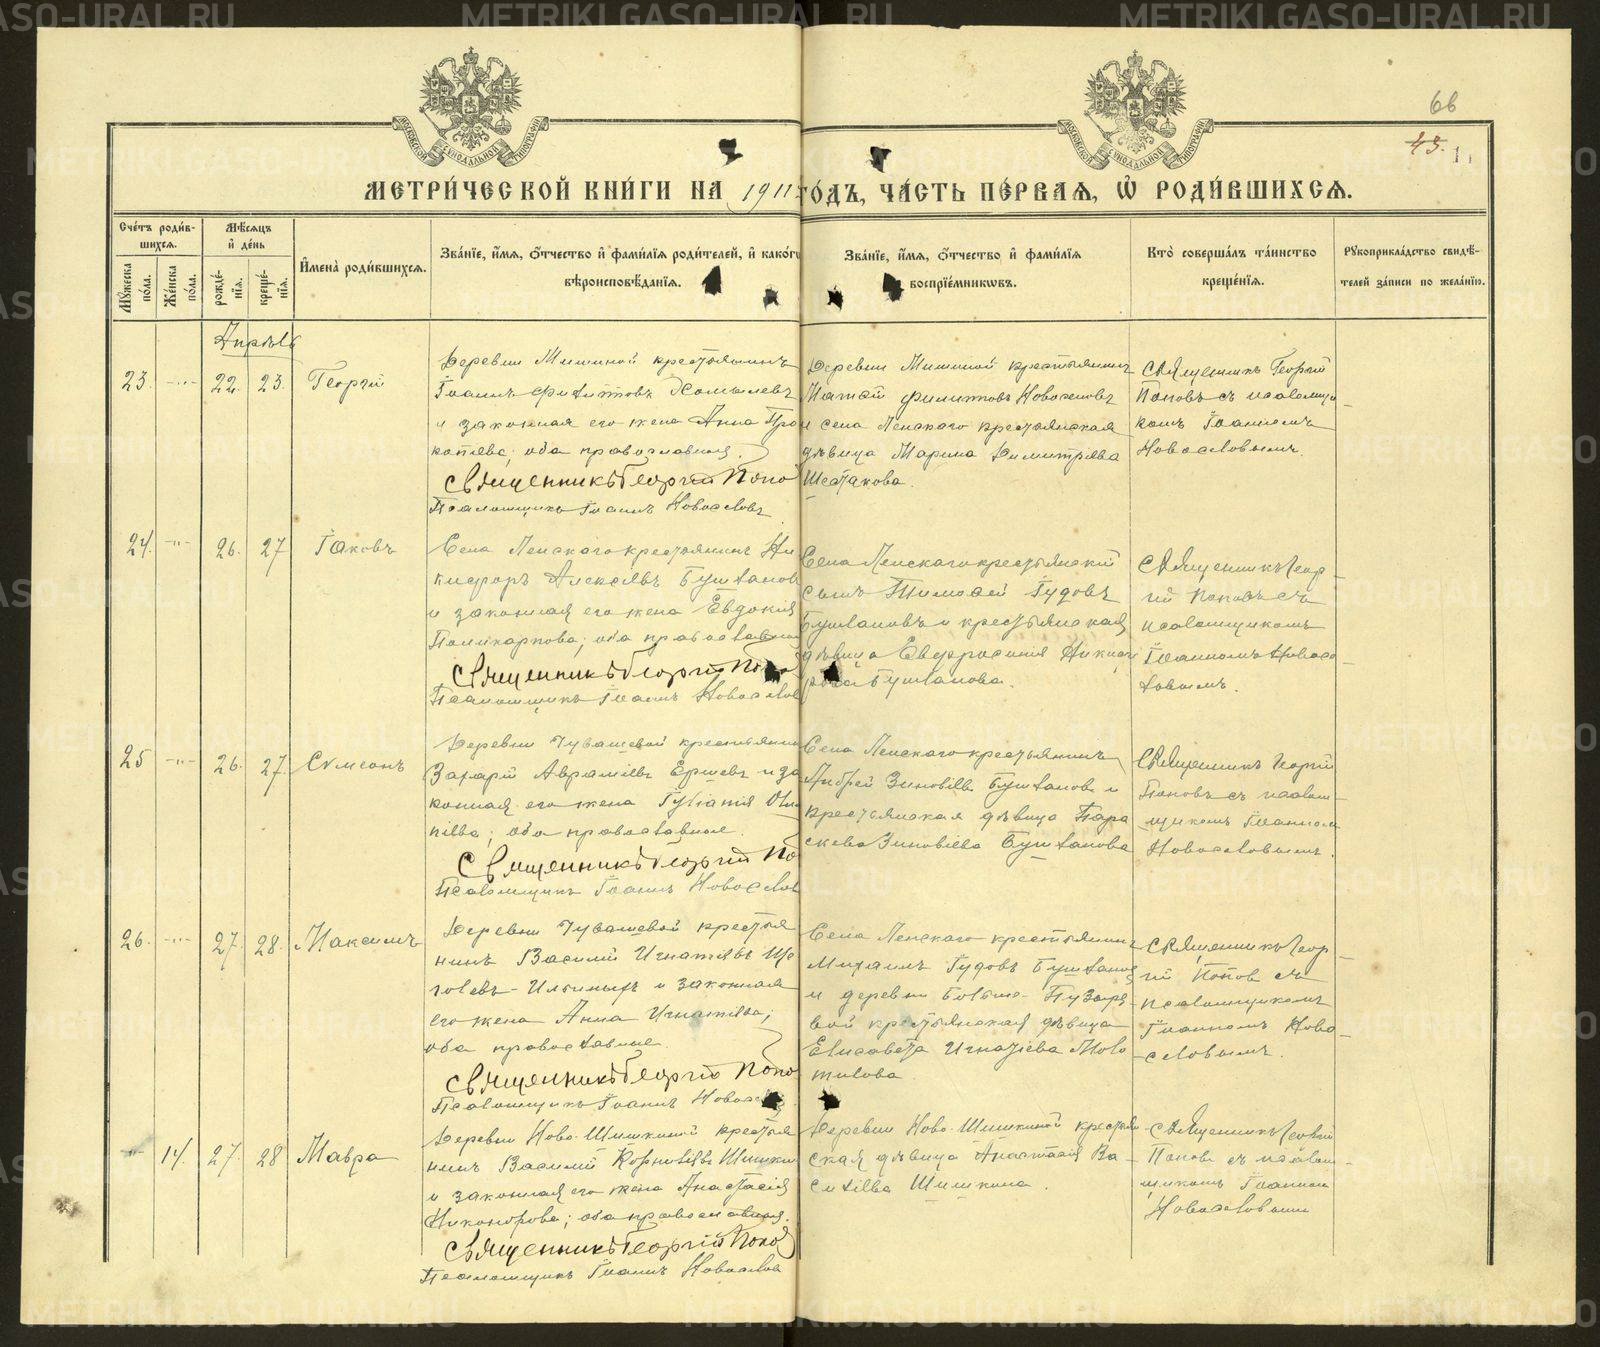 66
43.
МЕТРИ́ЧЕСКОЙ КНИ́ГИ НА 1911 ГО́ДЪ, ЧА́СТЬ ПЕ́РВАѦ, Ѽ РОДИ́ВШИХСѦ.
Сче́тъ роди́вшихсѧ.
Мѣ́сѧцъ и҆ де́нь
Мꙋ́жеска по́ла.
Же́нска по́ла.
рожде́нїѧ.
креще́нїѧ.
И҆мена̀ роди́вшихсѧ.
Зва́нїе, и҆́мѧ, о҆́тчество и҆ фами́лїѧ роди́телей, и҆ како́гѡ
вѣроисповѣ́данїѧ.
Зва́нїе, и҆́мѧ, о҆́тчество и҆ фами́лїѧ
воспрїе́мникѡвъ.
Кто̀ соверша́лъ та́инство
креще́нїѧ.
Рꙋкоприкла́дство свидѣ́
телей за́писи по жела́нїю.
Апрѣль
23. -"- 22. 23. Георгій
Деревни Мишиной крестьянинъ
Іоаннъ Филиповъ
и законная его жена Анна Про
копіева; оба православныя.
Священникъ Георгій Попо
Псаломщикъ Іоаннъ Новоселовъ
Деревни Мишиной крестьянинъ
Филиповъ Новоселовъ
и села Ленскаго крестьянская
дѣвица Марина Димитріева
Шестакова.
Священникъ Георгій
Поповъ съ псаломщи
комъ Іоанномъ
Новоселовымъ.
24. -"- 26. 27 Іаковъ
Села Ленскаго крестьянинъ Ни
кифоръ Алексѣевъ Бушлановъ
и законная его жена Евдокія
Поликарпова; оба православныя
Священникъ Георгій Попо
Псаломщикъ Іоаннъ Новоселов
Села Ленскаго крестьянскій
сынъ Тимофей Іудовъ
Бушлановъ и крестьянская
дѣвица Евфросинія Никифо
рова Бушланова.
Священникъ Геор
гій Поповъ съ
псаломщикомъ
Іоанномъ Новосе
ловымъ.
25 -"- 26. 27. Сѵмеонъ
Деревни Чувашевой крестьянин
Захарій Авраміевъ Ершевъ и за
конная его жена Іуліанія
піева; оба православные.
Священникъ Георгій По
Псаломщикъ Іоаннъ Новоселов
Села Ленскаго крестьянинъ
Андрей Зиновіевъ Бушлановъ и
крестьянская дѣвица Пара
скева Зиновіева Бушланова
Священникъ Георгій
Поповъ съ псалом
щикомъ Іоанном
Новоселовымъ.
26. -"- 27. 28. Максимъ
Деревни Чувашевой крестья
нинъ Василій Игнатіевъ Ще
голевъ и законная
его жена Анна Игнатіева;
оба православные.
Священникъ Георгій Попо
Псаломщикъ Іоаннъ Новосел
Села Ленскаго крестьянинъ
Михаилъ Іудовъ Бушланов
и деревни Больше-Пузаре
вой крестьянская дѣвица
Елисавета Игнатіева Моло
тилова
Священникъ Геор
гій Попов съ
псаломщикомъ
Іоанномъ Ново
селовымъ.
-"- 14. 27. 28 Мавра
Деревни Ново-Шишкиной крестья
нинъ Василій Корниліевъ Шишкин
и законная его жена Анастасія
Никонорова; оба православныя.
Священникъ Георгій Попов
Псаломщикъ Іоаннъ Новоселов
Деревни Ново-Шишкиной крестьян
ская дѣвица Анастасія Ва
силіева Шишкина.
Священникъ Георгій
Поповъ съ псалом
щикомъ Іоанном
Новоселовымъ
METRIKI.GASO-URAL.RU